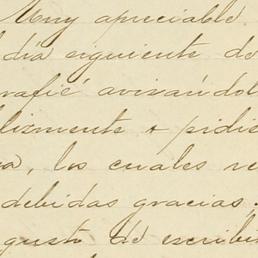 Muy apreciable
día siguiente do
rafié avisándol
lizmente + pidie
a, los cuales re
debidas gracias.
gusto de escribi